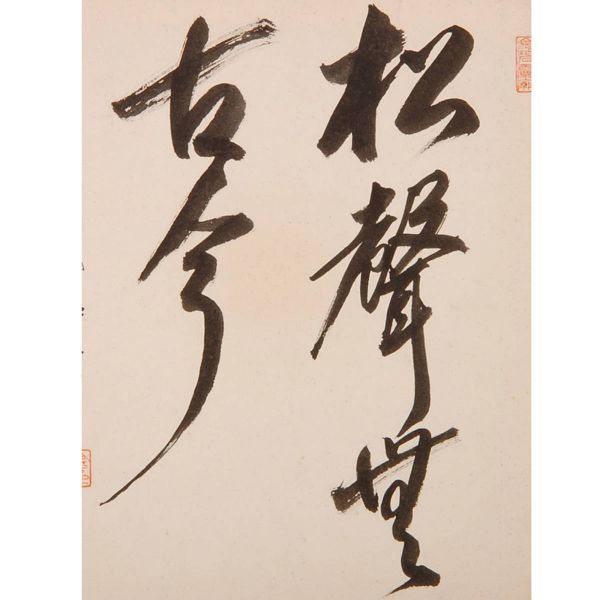 松聲無
古今